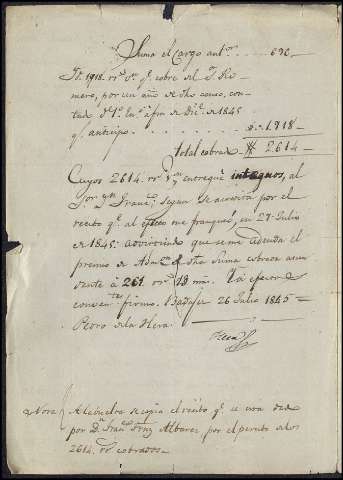 Suma el Cargo antor. ..... 696.
Id. 1918. rs. vn. q. cobré del Sr. Ro-
mero, por un año de dho censo, con-
tado de 1o. En. a fin de Dic. de 1845
y anticipo. ..... 1.918
total cobrado # 2614
Cuyos 2614. rs. vn entregué integros, al
Sor. Dn. Franco. según se acredita por el
recibo q. al efecto me franqueó, en 27 Julio
de 1845: advirtiendo que se me adeuda el
premio de Admon. de dha suma cobrada
á 261. rs. 13 ms. Y á efectos
conventes. firmo. Badajoz 26 Julio 1845
Pedro de la Hera.
Hera
Nota A la vuelta se copia el recibo q.
por Dn. Franco. Frnz Albarez por el percibo de los
2614. rs. cobrados.